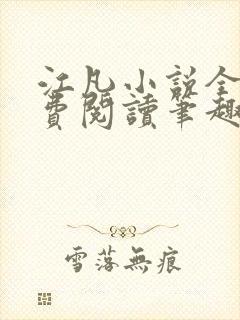 江凡小説全
費閱讀筆趣
雪落無痕